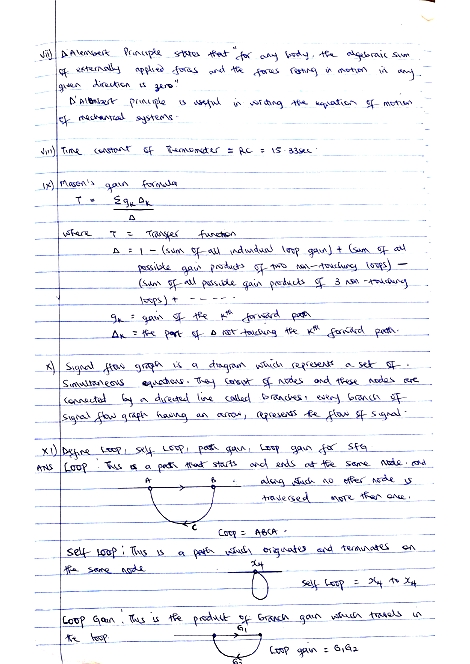 vii) D'Alembert Principle states that "for any body, the algebraic sum
of externally applied forces and the forces resting in motion in any
given direction is zero"
D'Alembert principle is useful in writing the equation of motion
of mechanical systems.
viii) Time constant of Thermometer = RC = 15.33sec.
ix) Mason's gain formula
T = Σ gk Δk
Δ
where T = Transfer function
Δ = 1 - (sum of all individual loop gain) + (sum of all
possible gain products of two non-touching loops) -
(sum of all possible gain products of 3 non-touching
loops) + - - - - -
gk = gain of the kth forward path
Δk = the part of Δ not touching the kth forward path.
x) Signal flow graph is a diagram which represents a set of
Simultaneous equations. They consist of nodes and these nodes are
connected by a directed line called branches. every branch of
signal flow graph having an arrow, represents the flow of signal.
xi) Define Loop, Self Loop, path gain, Loop gain for SFG
ANS Loop: This is a path that starts and ends at the same node. and
A B along which no other node is
traversed more than once.
C
Loop = ABCA.
Self Loop: This is a path which originates and terminates on
the same node
x4
Self Loop = x4 to x4
Loop Gain: This is the product of branch gain which travels in
the loop
G1
G2
Loop gain = G1G2